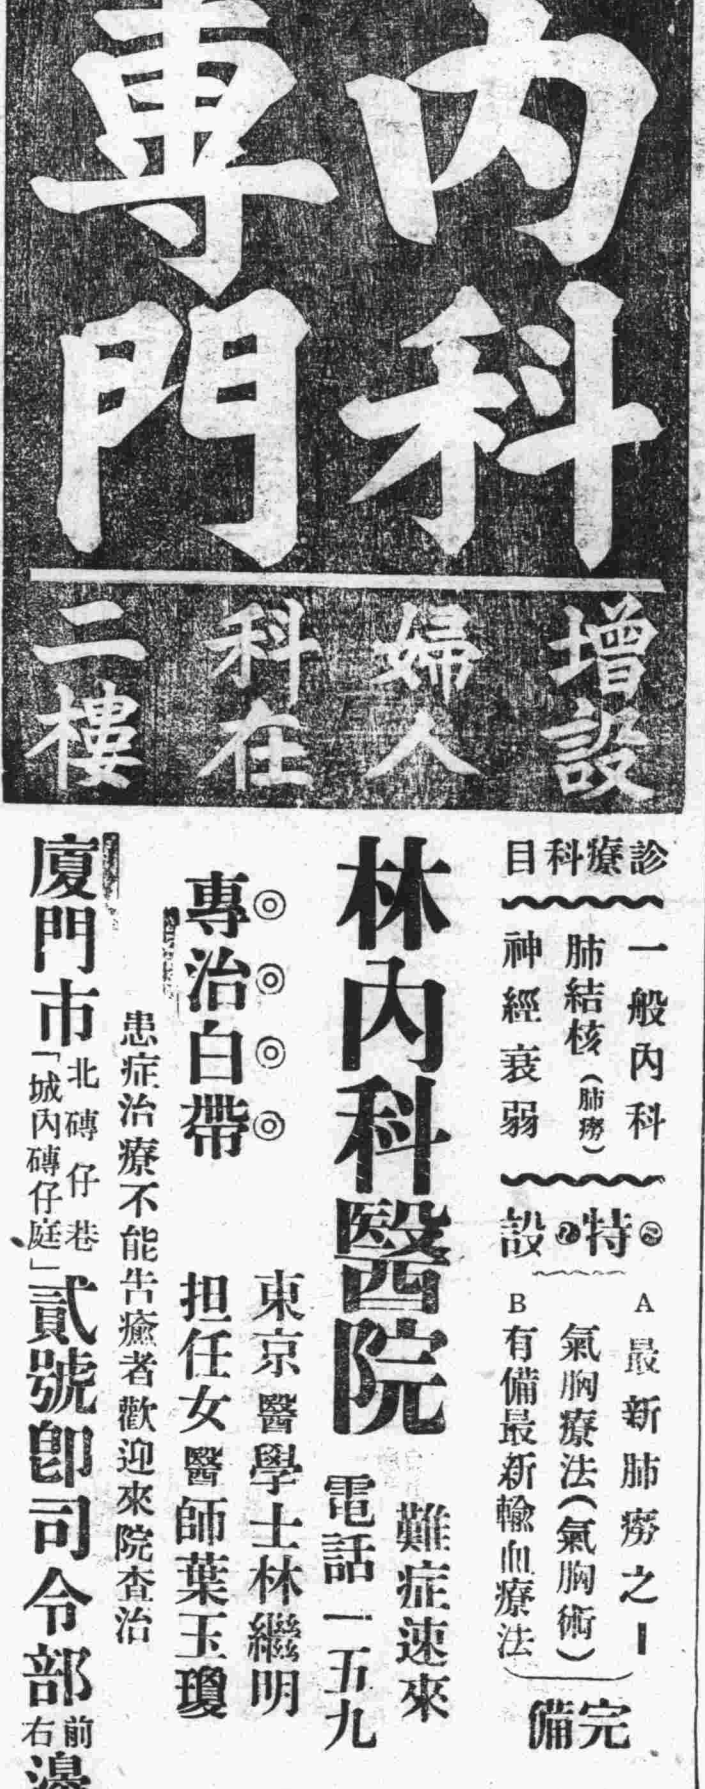 內科
專門
增設
婦人
科在
二樓
診療科目
一般內科
肺結核（肺癆）
神經衰弱
特設
A 最新肺癆之一
氣胸療法（氣胸術）
B 有備最新輸血療法
完備
林內科醫院
難症速來
電話一五九
◎◎◎◎
專治白帶
東京醫學士林繼明
担任女醫師葉玉瓊
患症治療不能告癒者歡迎來院查治
廈門市北磚仔巷「城內磚仔庭」貳號卽司令部前右邊